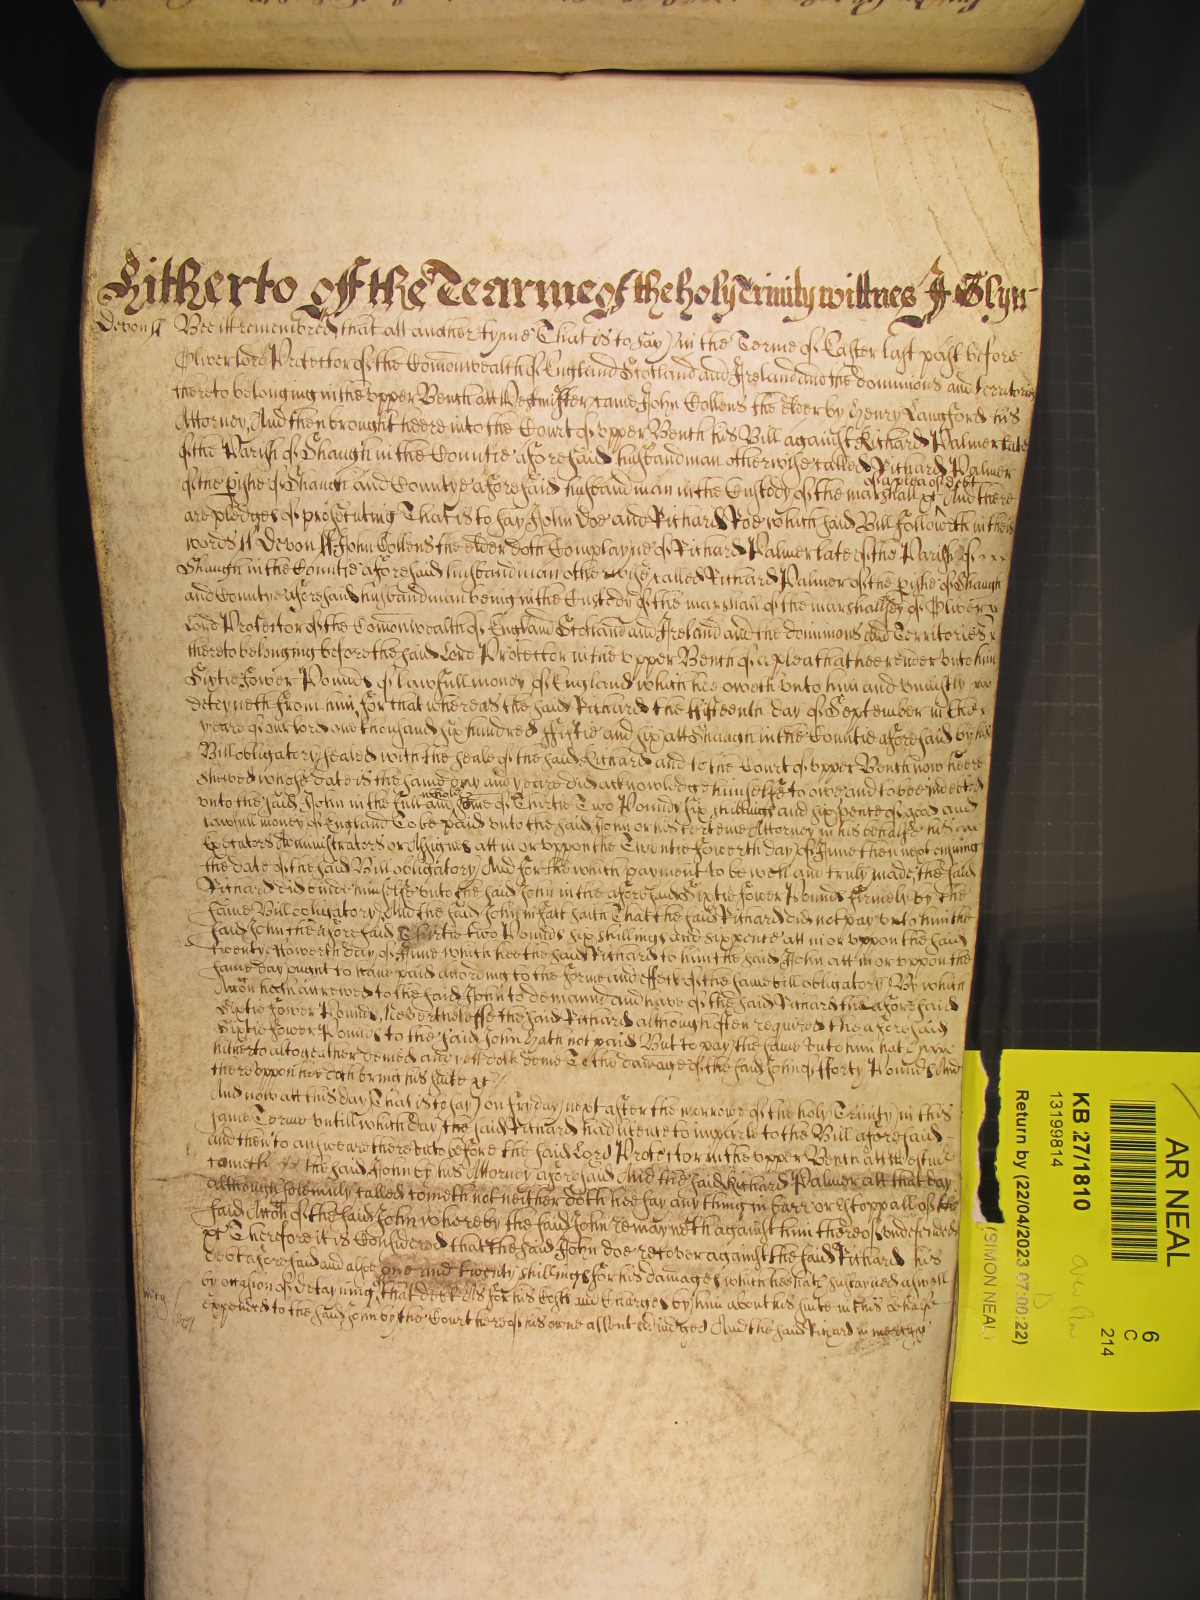 Hitherto of the Tearme of the holy Trinity wittnes J Glyn
Devon ss Bee itt remembred that att another tyme That is to say in the Terme of Easter last past before
Oliver lord Protector of the Comonwealth of England Scotland and Ireland and the dominions and Territories
thereto belonging in the vpper Bench att Westminster came John Collens the elder by Henry Langford his
Attorney, And then brought heere into the Court of vpper Bench his Bill against Richard Palmer late
of the Parish of Shaugh in the Countie aforesaid husbandman otherwise called Richard Palmer
of a plea of debt
of the pishe of Shaugh and Countye aforesaid husbandman in the Custody of the marshall &c And there
are pledges of prosecuting That is to say John Doe and Richard Roe which said Bill followeth in these
words ss Devon ss John Collens the elder doth Complayne of Richard Palmer late of the Parish of
Shaugh in the Countie aforesaid husbandman otherwise called Richard Palmer of the pishe of Shaugh
and Countye aforesaid husbandman being in the Custody of the marshall of the marshallsey of Oliver
Lord Protector of the Comonwealth of England Scotland and Ireland and the dominions and Territories
thereto belonging before the said Lord Protector in the vpper Bench of a plea that hee render vnto him
Sixtie fower Pounds of lawfull money of England which hee oweth vnto him and vniustly
deteyneth from him, for that whereas the said Richard the fifteenth day of September in the
yeare of our lord one thousand six hundred fiftie and six att Shaugh in the Countie aforesaid by his
Bill obligatory sealed with the seale of the said Richard and to the Court of vpper Bench now heere
shewed whose date is the same day and yeare did acknowledge himselfe to owe and to bee indebted
whole
vnto the said John in the full and some of Thirtie Two Pounds six shillings and sixpence of good and
lawfull money of England To be paid vnto the said John or his certeine Attorney in his behalfe his
Executors Administrators or Assignes att in or vppon the Twentie fowerth day of June then next ensuing
the date of the said Bill obligatory, And for the which payment to be well and truly made, the said
Richard did binde himselfe vnto the said John in the aforesaid Sixtie fower Pounds firmely by the
same Bill obligatory, And the said John in fact saith That the said Richard did not pay vnto him the
said John the aforesaid Thirtie two Pounds six shillings and sixpence att in or vppon the said
twenty fowerth day of June which hee the said Richard to him the said John att in or vppon the
same day ought to have paid according to the forme and effect of the same bill obligatory By which
Accon hath accrewed to the said John to demannd and have of the said Richard the aforesaid
Sixtie fower Pounds, Neverthelesse the said Richard although often required the aforesaid
Sixtie fower Pounds to the said John hath not paid But to pay the same vnto him hath
hitherto altogeather denied and yett doth denie To the damage of the said John of fforty Pounds And
therevppon hee doth bring his suite &c
And now att this day That is to say on fryday next after the morrowe of the holy Trinity in this
same Terme vntill which day the said Richard had licence to imparle to the Bill aforesaid
and then to answeare there vnto before the said Lord Protector in the vpper Bench att Westmr
cometh the said John by his Attorney aforesaid And the said Richard Palmer att that day
although solemnly called cometh not neither doth hee say any thing in barr or estoppall of the
said Accon of the said John whereby the said John remayneth against him thereof vndefended
&c Therefore it is Considered that the said John doe recover against the said Richard his
debt aforesaid and alsoe one and twenty shillings for his damages which hee hath sustayned aswell
by occasion of detayning that debt As for his Costs and Charges by him about his suite in this behalfe
expended to the said John by the Court here of his owne assent adiudged And the said Richard in mercy &c
mercy
AR NEAL
6
C
214
KB 27/1810
13199814
(SIMON NEAL)
Return by (22/04/2023 07:00:22)